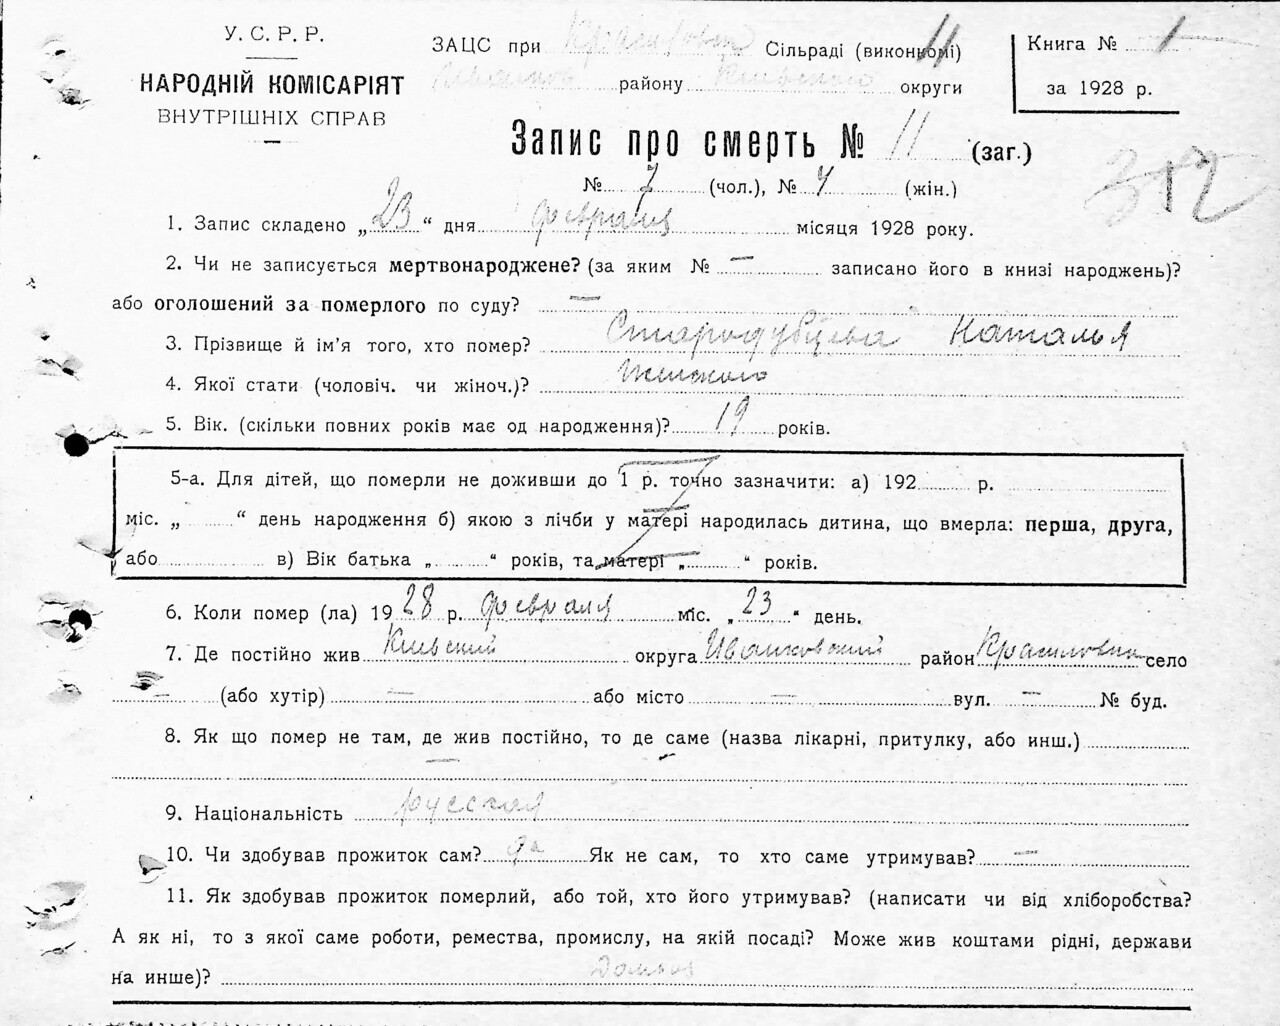 У. С. Р. Р.
НАРОДНІЙ КОМІСАРІЯТ
ВНУТРІШНІХ СПРАВ
ЗАЦС при Красиловка Сільраді (виконкомі)
району Киевского округи
11
Книга № 1
за 1928 р.
Запис про смерть № 11 (заг.)
№ 7 (чол.), № 4 (жін.)
312
1. Запис складено „23“ дня февраля місяця 1928 року.
2. Чи не записується мертвонароджене? (за яким № — записано його в книзі народжень)?
або оголошений за померлого по суду? —
3. Прізвище й ім’я того, хто помер? Стародубцева Наталья
4. Якої стати (чоловіч. чи жіноч.)? Женского
5. Вік. (скільки повних років має од народження)? 19 років.
5-а. Для дітей, що померли не доживши до 1 р. точно зазначити: а) 192 р.
міс. „ “ день народження б) якою з лічби у матері народилась дитина, що вмерла: перша, друга,
або в) Вік батька „ “ років, та матері „ “ років.
6. Коли помер (ла) 1928 р. февраля міс. „23“ день.
7. Де постійно жив Киевский округа Иванковский район Красиловка село
— (або хутір) — або місто — вул. — № буд.
8. Як що помер не там, де жив постійно, то де саме (назва лікарні, притулку, або инш.)
— —
9. Національність русская
10. Чи здобував прожиток сам? да Як не сам, то хто саме утримував? —
11. Як здобував прожиток померлий, або той, хто його утримував? (написати чи від хліборобства?
А як ні, то з якої саме роботи, ремества, промислу, на якій посаді? Може жив коштами рідні, держави
на инше)?